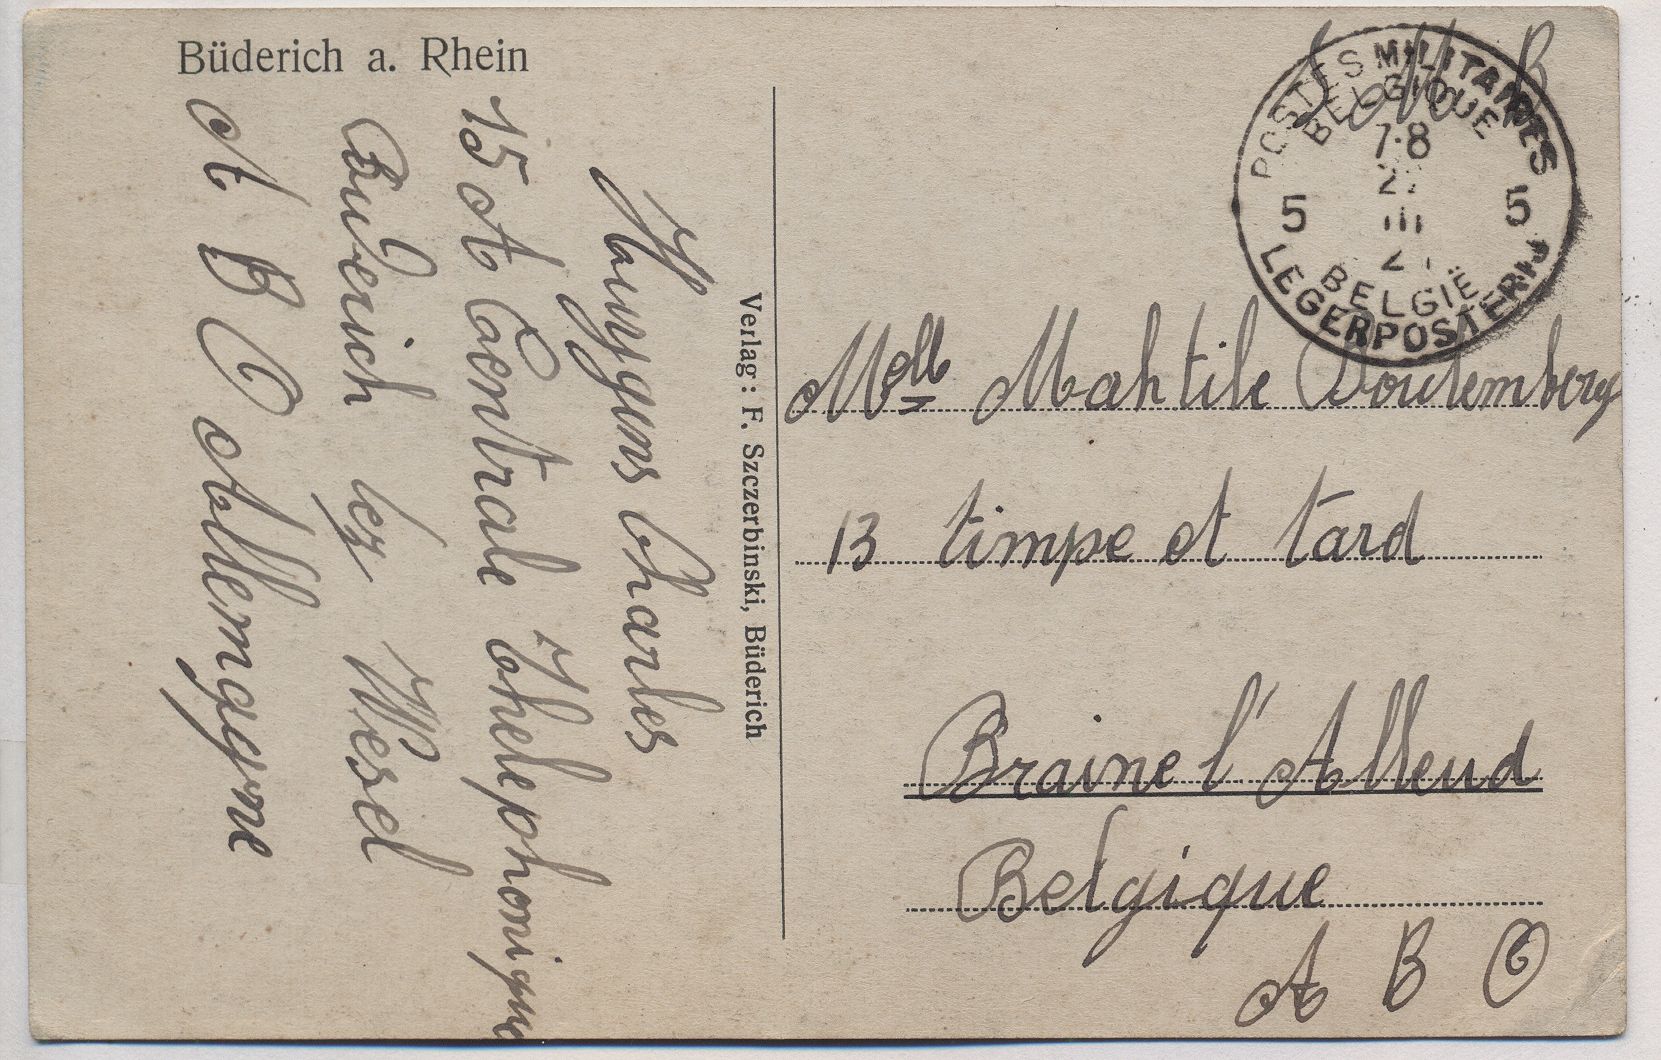 Büderich a. Rhein
Huygens Charles
15 A Centrale Thelephonique
Buderich lez Wesel
A B O Allemagne
Verlag: F. Szczerbinski, Büderich
S M B
POSTES MILITAIRES
BELGIQUE
7-8
III
5 5
BELGIË
LEGERPOSTERIJ
Melle Mahtile Woutemberg
13 timpe et tard
Braine l'Alleud
Belgique
A B O